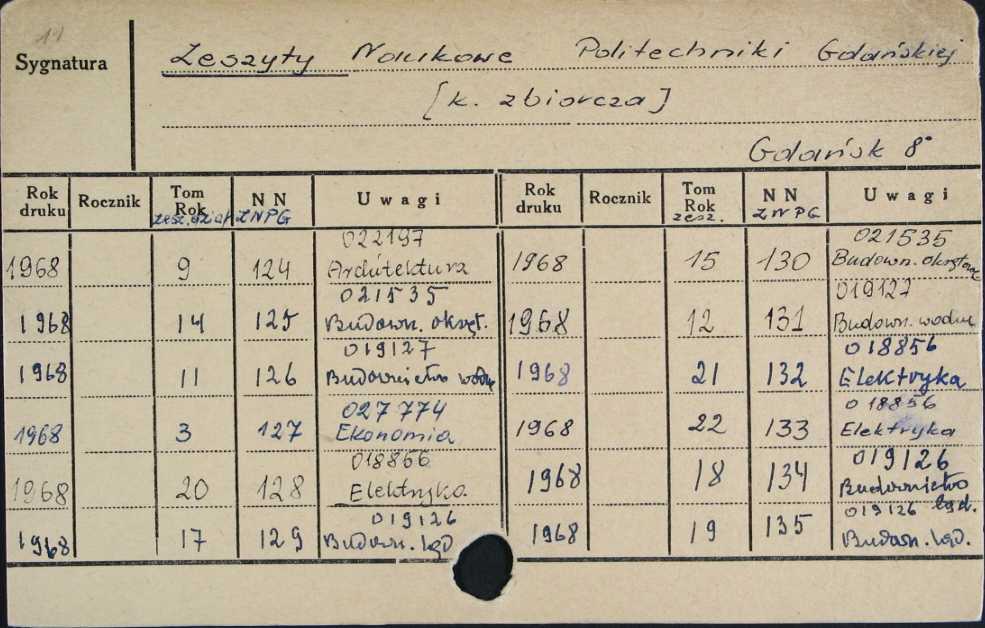 14
Sygnatura
Zeszyty Naukowe Politechniki Gdańskiej
[k. zbiorcza]
Gdańsk 8°
Rok druku Rocznik Tom Rok zesz. dział NN ZNPG Uwagi
1968 9 124 022197 Architektura
1968 14 125 021535 Budown. okręt.
1968 11 126 019127 Budownictwo wodne
1968 3 127 027774 Ekonomia
1968 20 128 018856 Elektryka
1968 17 129 019126 Budown. ląd.
Rok druku Rocznik Tom Rok zesz. NN ZNPG Uwagi
1968 15 130 021535 Budown. okrętowe
1968 12 131 019127 Budown. wodne
1968 21 132 018856 Elektryka
1968 22 133 018856 Elektryka
1968 18 134 019126 Budownictwo ląd.
1968 19 135 019126 Budown. ląd.